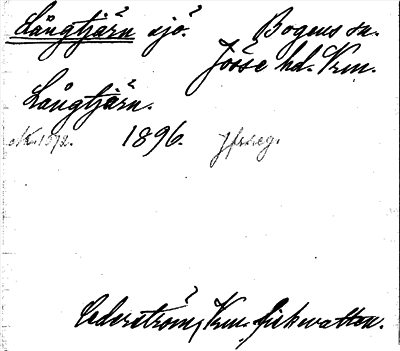 Långtjärn sjö. Bogens sn.
Jösse hd. Vrm.
Långtjärn.
1896. Jfr reg.
Cederström, Vrm. fiskvatten.